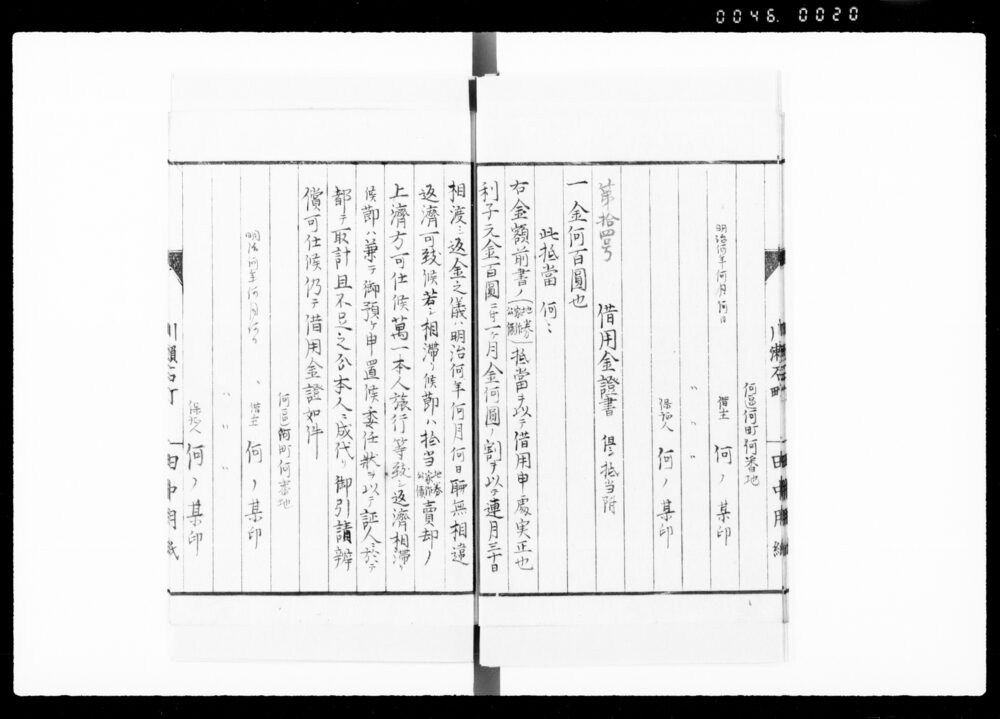 0046. 0020
何區何町何番地
明治何年何月何日 借主 何ノ某印
〃 〃 〃
保証人 何ノ某印
第拾四号 借用金證書 但シ抵当附
一金何百圓也
此抵當 何〻
右金額前書ノ(地券 家作 公債)抵當ヲ以テ借用申處実正也
利子元金百圓ニ付一ヶ月金何圓ノ割ヲ以テ連月三十日
相渡シ返金之儀ハ明治何年何月何日聊無相違
返濟可致候若シ相滞リ候節ハ抵当地券 家作 公債賣却ノ
上濟方可仕候萬一本人旅行等致シ返濟相滞リ
候節ハ兼テ御預ケ申置候委任状ヲ以テ証人ニ於テ
都テ取計且不足之分本人ニ成代リ御引請辨
償可仕候仍テ借用金證如件
何區何町何番地
明治何年何月何日 借主 何ノ某印
〃 〃 〃
保証人 何ノ某印
川瀬石町 田中用紙